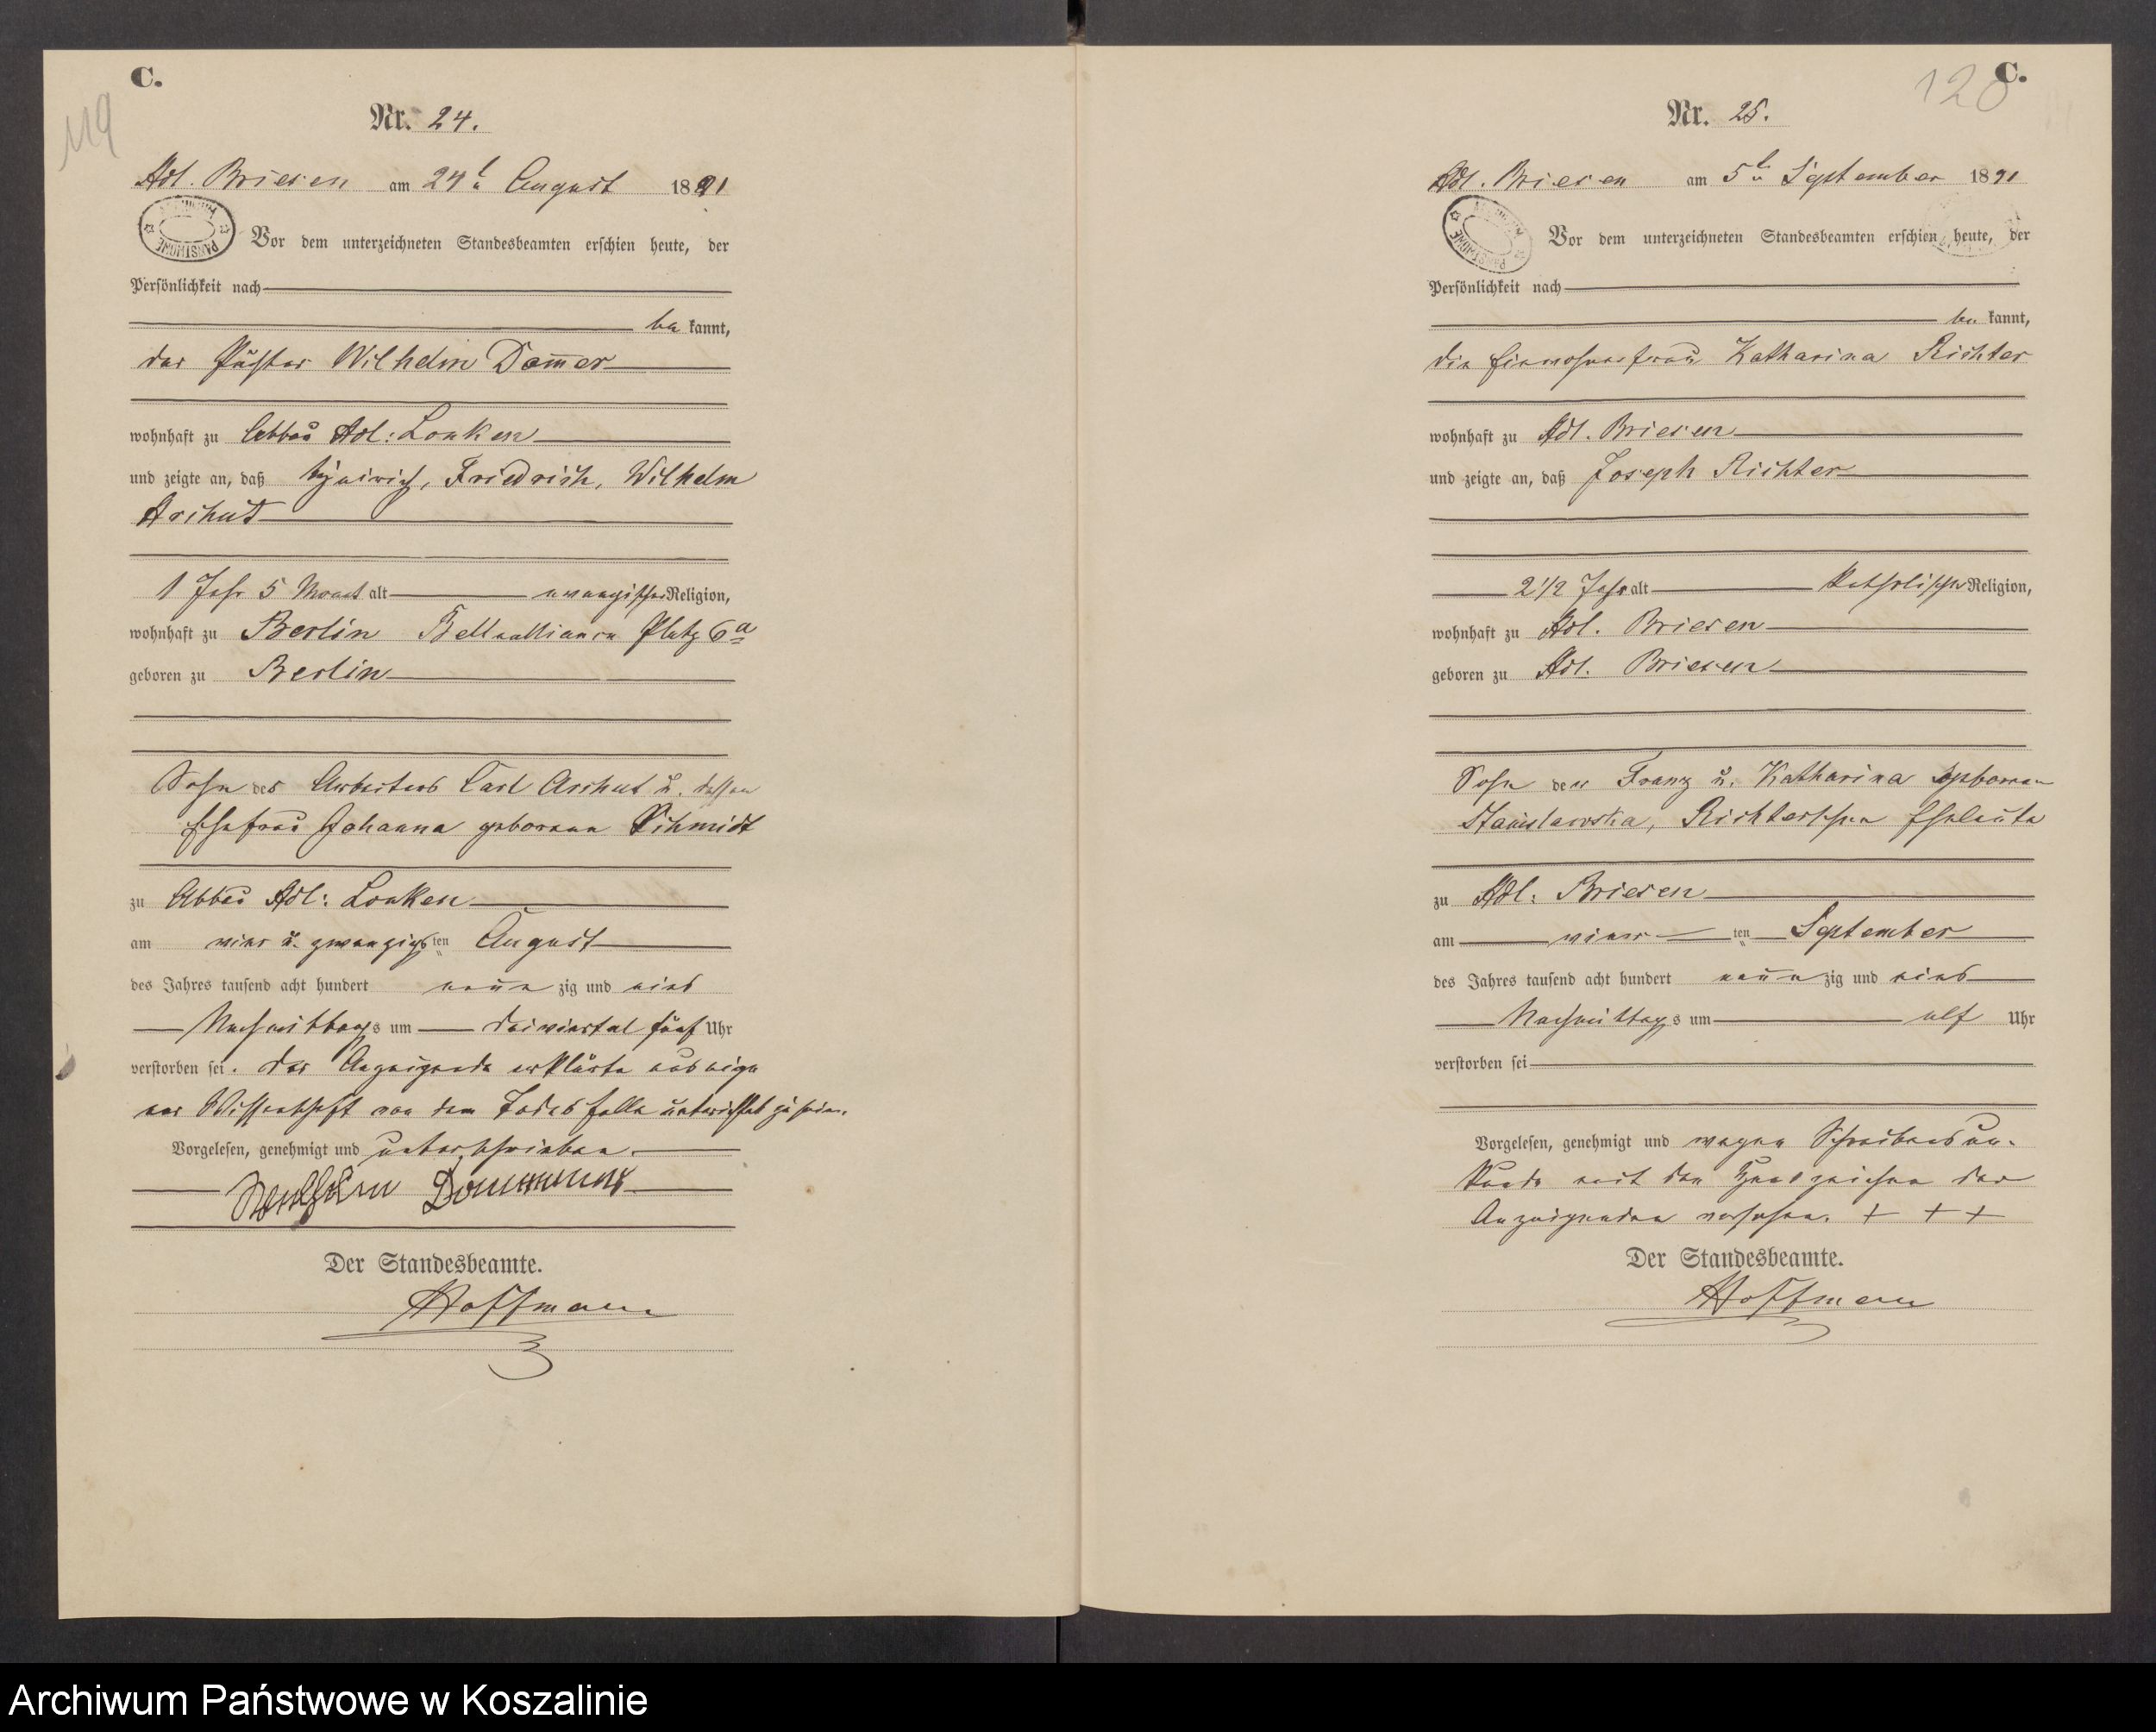 C.
119
Nr. 24.
Adl. Briesen am 24t August 1891
ARCHIWUM PAŃSTWOWE
Vor dem unterzeichneten Standesbeamten erschien heute, der
Persönlichkeit nach
be kannt,
der Pächter Wilhelm Dom̅er
wohnhaft zu Abbau Adl: Lonken
und zeigte an, daß Heinrich, Friedrich, Wilhelm
Archut
1 Jahr 5 Monat alt evangelischer Religion,
wohnhaft zu Berlin Belleallianca Platz 6a
geboren zu Berlin
Sohn des Arbeiters Carl Archut u. dessen
Ehefrau Johanna geborene Schmidt
zu Abbau Adl: Lonken
am vier u. zwanzigsten August
des Jahres tausend acht hundert neun zig und eins
Nachmittags um dreiviertel fünf Uhr
verstorben sei. Der Anzeigende erklärte aus eige
ner Wissenschaft von dem Todesfalle unterrichtet zu sein.
Vorgelesen, genehmigt und unterschrieben.
Wilhelm Dommer
Der Standesbeamte.
Hoffmann
C.
120
Nr. 25.
Adl. Briesen am 5t September 1891
ARCHIWUM PAŃSTWOWE
Vor dem unterzeichneten Standesbeamten erschien heute, der
Persönlichkeit nach
be kannt,
die Einwohnerfrau Katharina Richter
wohnhaft zu Adl. Briesen
und zeigte an, daß Joseph Richter
2 1/2 Jahr alt Katholischer Religion,
wohnhaft zu Adl. Briesen
geboren zu Adl. Briesen
Sohn der Franz u. Katharina geborene
Stanislawska, Richterschen Eheleute
zu Adl: Briesen
am vierten September
des Jahres tausend acht hundert neun zig und eins
Nachmittags um elf Uhr
verstorben sei
Vorgelesen, genehmigt und wegen Schreibensun-
kunde mit den Handzeichen der
Anzeigenden versehen. + + +
Der Standesbeamte.
Hoffmann
Archiwum Państwowe w Koszalinie